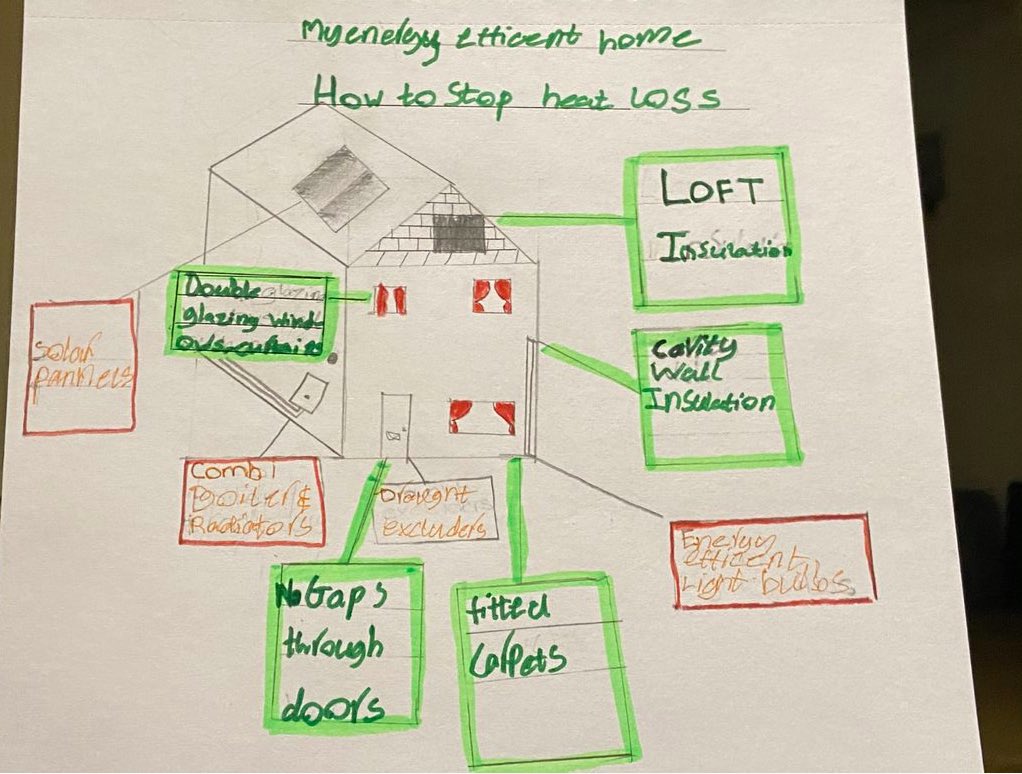 My energy efficent home
How to Stop heat Loss
LOFT
Insulation
Double glazing
glazing wind
ows curtains
Solar
panнels
cavity
Wall
Insulation
Combi
Boiler &
Radiators
Draught
excluders
Energy
efficient
Light bulbs
No Gaps
through
doors
fitted
Carpets